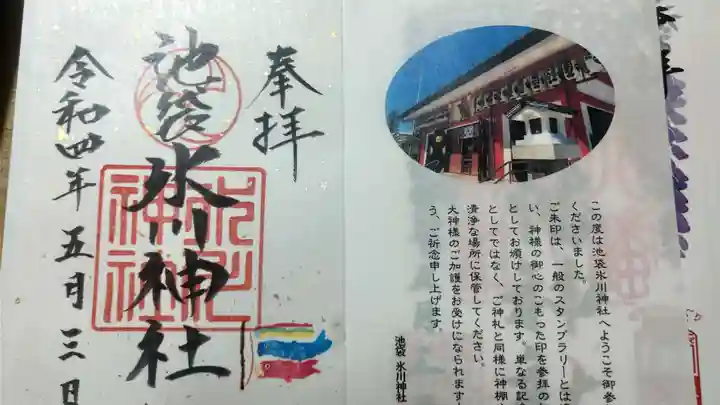 奉拝
池袋氷川神社
令和四年五月三日
氷川
神社
この度は池袋氷川神社へようこそ御参
くださいました。
ご朱印は、一般のスタンプラリーとは
い、神様の御心のこもった印を参拝の
としてお頒けしております。単なる記
としてではなく、ご神札と同様に神棚
清浄な場所に保管してください。
大神様のご加護をお受けになられます
う、ご祈念申し上げます。
池袋 氷川神社